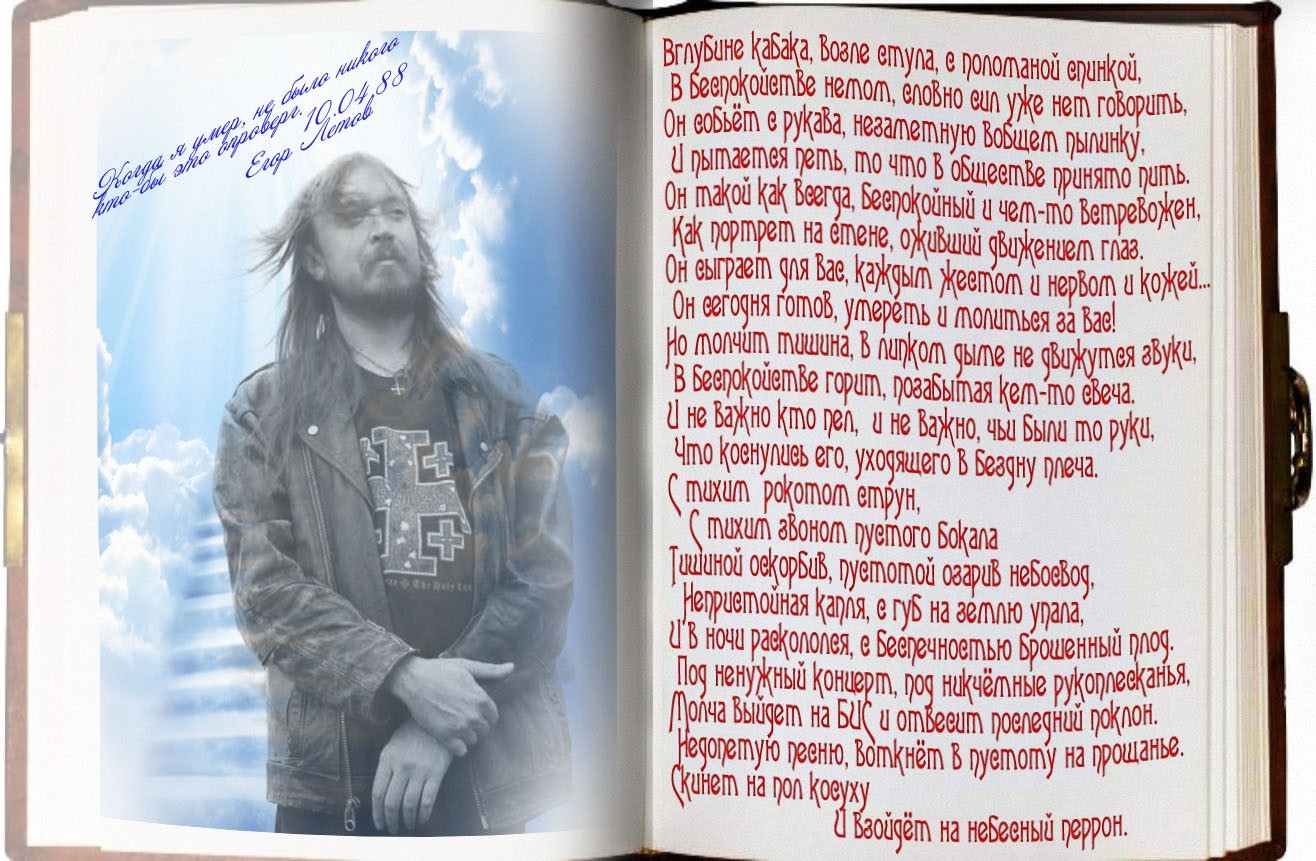 Когда я умер, не было никого
кто-бы это опроверг.
10.04.88
Егор Летов
The Holy
Вглубине кабака, возле стула, с поломаной спинкой,
В беспокойстве немом, словно сил уже нет говорить,
Он собьёт с рукава, незаметную вобщем пылинку,
И пытается петь, то что в обществе принято пить.
Он такой как всегда, беспокойный и чем-то встревожен,
Как портрет на стене, оживший движением глаз.
Он сыграет для вас, каждым жестом и нервом и кожей...
Он сегодня готов, умереть и молиться за вас!
Но молчит тишина, в липком дыме не движутся звуки,
В беспокойстве горит, позабытая кем-то свеча.
И не важно кто пел, и не важно, чьи были то руки,
Что коснулись его, уходящего в бездну плеча.
С тихим рокотом струн,
С тихим звоном пустого бокала
Тишиной оскорбив, пустотой озарив небосвод,
Непристойная капля, с губ на землю упала,
И в ночи раскололся, с беспечностью брошенный плод.
Под ненужный концерт, под никчёмные рукоплесканья,
Молча выйдет на БИС и отвесит последний поклон.
Недопетую песню, воткнёт в пустоту на прощанье.
Скинет на пол косуху
И взойдёт на небесный перрон.